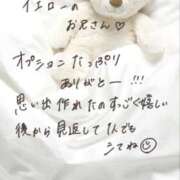 イエローの
お兄さん♡
オプションたっぷり
ありがとー!!!
思い出作れたのすっごく嬉しい
後から見返してんでも
シてね☺